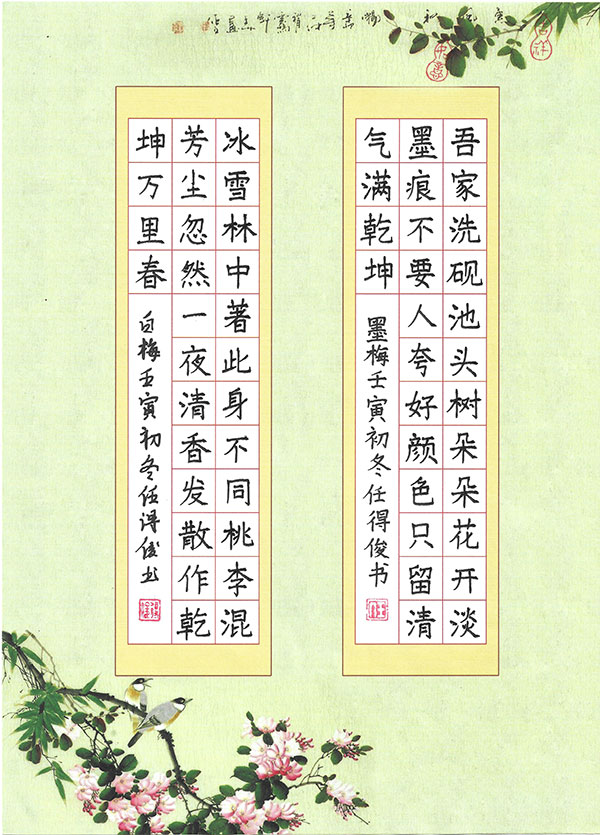 吾家洗砚池头树朵朵花开淡
墨痕不要人夸好颜色只留清
气满乾坤
墨梅壬寅初冬任得俊书
冰雪林中著此身不同桃李混
芳尘忽然一夜清香发散作乾
坤万里春
白梅壬寅初冬任得俊书
吉祥